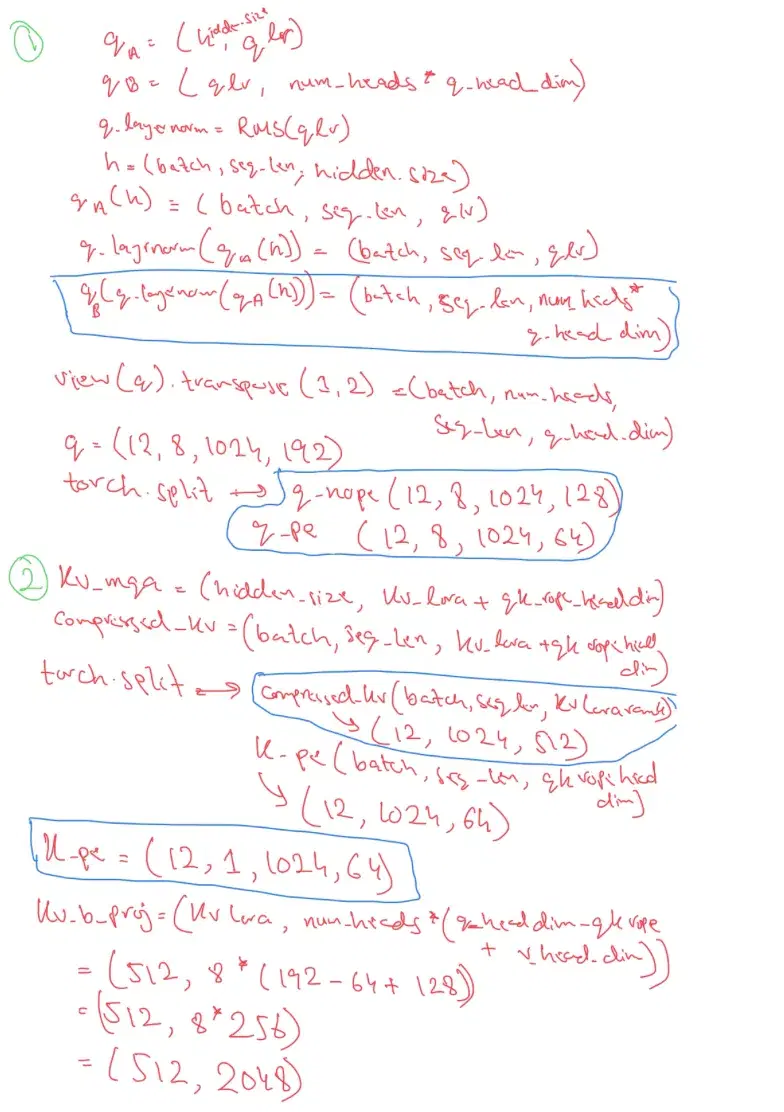 ①
q_A = (hidden.size, q lr)
q_B = (q lr, num_heads * q_head_dim)
q_layernorm = RMS(q lr)
h = (batch, seq_len, hidden.size)
q_A(h) = (batch, seq_len, q lr)
q_layernorm(q_A(h)) = (batch, seq_len, q lr)
q_B(q_layernorm(q_A(h))) = (batch, seq_len, num_heads *
q_head_dim)
view(q).transpose(1,2) = (batch, num_heads,
seq_len, q_head_dim)
q = (12, 8, 1024, 192)
torch.split → q_nope (12, 8, 1024, 128)
q_pe (12, 8, 1024, 64)
② kv_mqa = (hidden_size, kv_lora + qk_rope_head dim)
compressed_kv = (batch, seq_len, kv_lora + qk rope head
dim)
torch.split → compressed_kv (batch, seq len, kv lora rank)
↘ (12, 1024, 512)
k_pe (batch, seq_len, qk rope head
dim)
↘ (12, 1024, 64)
k_pe = (12, 1, 1024, 64)
kv_b_proj = (kv lora, num_heads * (q_head dim - qk rope
+ v_head_dim))
= (512, 8 * (192 - 64 + 128))
= (512, 8 * 256)
= (512, 2048)